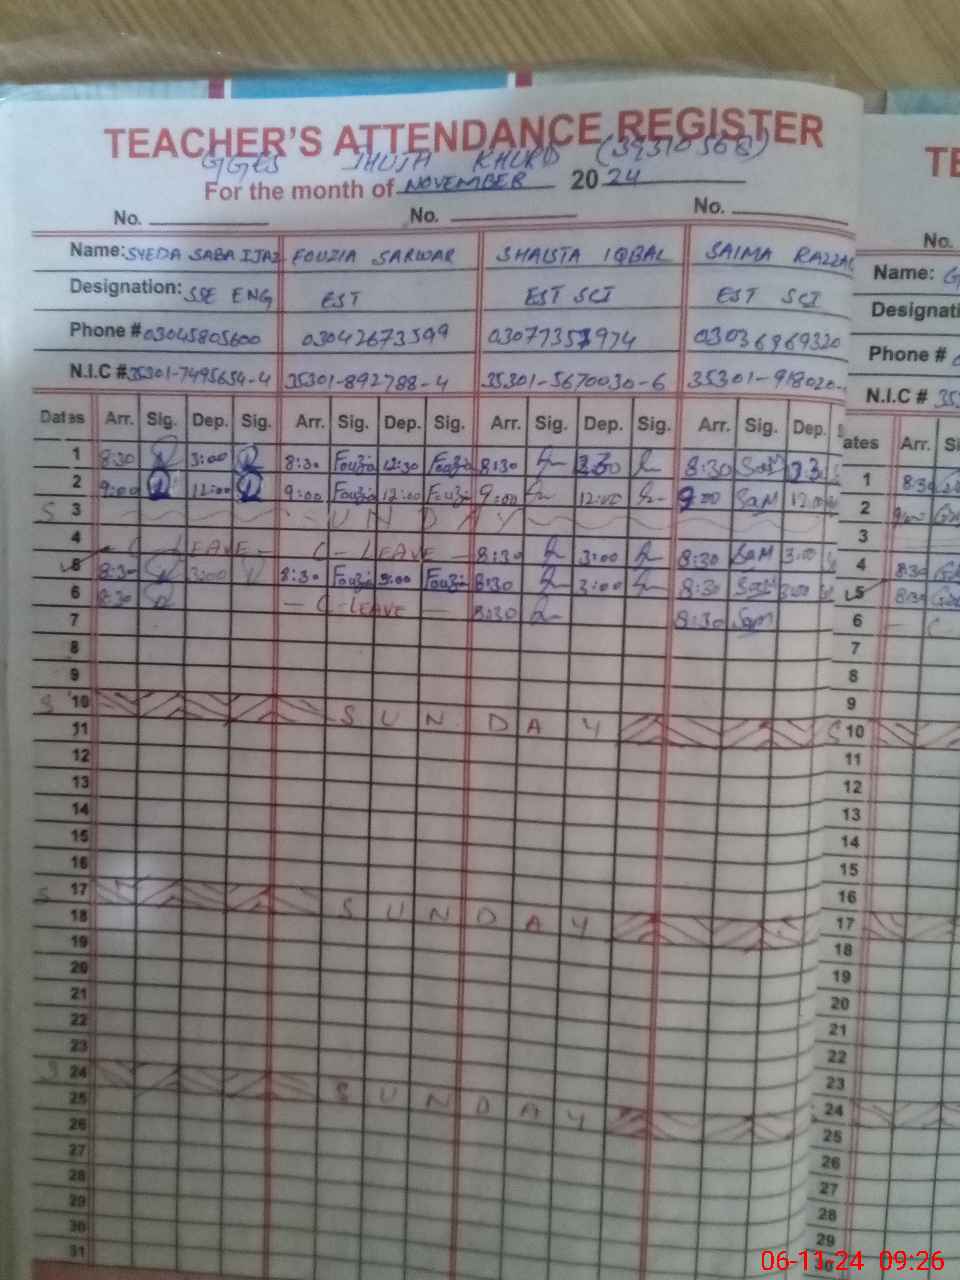 TEACHER'S ATTENDANCE REGISTER
GGES JHUJA KHURD (39310568)
For the month of NOVEMBER 2024
No. No. No.
Name: SYEDA SABA IJAZ FOUZIA SARWAR SHAISTA IQBAL SAIMA RAZZAQ
Designation: SSE ENG EST EST SCI EST SCI
Phone # 03045805600 03042673599 03077357974 03036969320
N.I.C # 35301-7495654-4 35301-892788-4 35301-5670030-6 35301-918020-
Dates Arr. Sig. Dep. Sig. Arr. Sig. Dep. Sig. Arr. Sig. Dep. Sig. Arr. Sig. Dep.
1 8:30 3:00 8:30 Fouzia 12:30 Fouzia 8:30 8:30
2 9:00 12:00 9:00 Fouzia 12:00 Fouzia 9:00 12:00 9:00 Sam 12:00
S 3 SUNDAY
4 C-LEAVE C-LEAVE 8:30 3:00 8:30 Sam 3:00
5 8:30 3:00 8:30 Fouzia 3:00 Fouzia 8:30 3:00 8:30 Sam 3:00
6 8:30 C-LEAVE 8:30 8:30 Sam
7
8
9
S 10 SUNDAY
11
12
13
14
15
16
S 17 SUNDAY
18
19
20
21
22
23
S 24 SUNDAY
25
26
27
28
29
30
31
TE
No.
Name: G
Designati
Phone #
N.I.C # 35
ates Arr. Si
1 8:30
2
3
4 8:30
5 8:30
6 - C
7
8
9
S 10
11
12
13
14
15
16
17
18
19
20
21
22
23
24
25
26
27
28
29
30
06-11-24 09:26